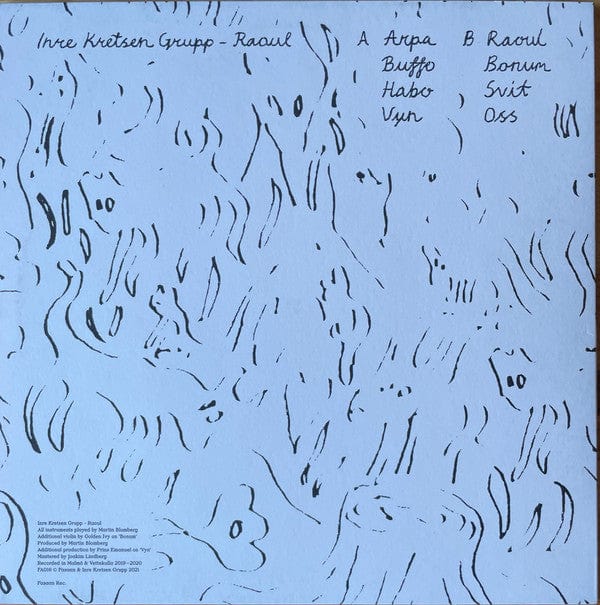 Inre Kretsen Grupp - Raoul
A Arpa
Buffo
Habo
Vyn
B Raoul
Bonum
Svit
Oss
Inre Kretsen Grupp - Raoul
All instruments played by Martin Blomberg
Additional violin by Golden Ivy on 'Bonum'
Produced by Martin Blomberg
Additional production by Prins Emanuel on 'Vyn'
Mastered by Joakim Lindberg
Recorded in Malmö & Vattakulla 2019 - 2020
FA018 © Fasaan & Inre Kretsen Grupp 2021
Fasaan Rec.